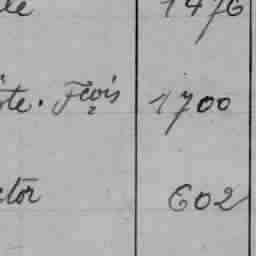 le 1476
te. Fçois 1700
ctor 602